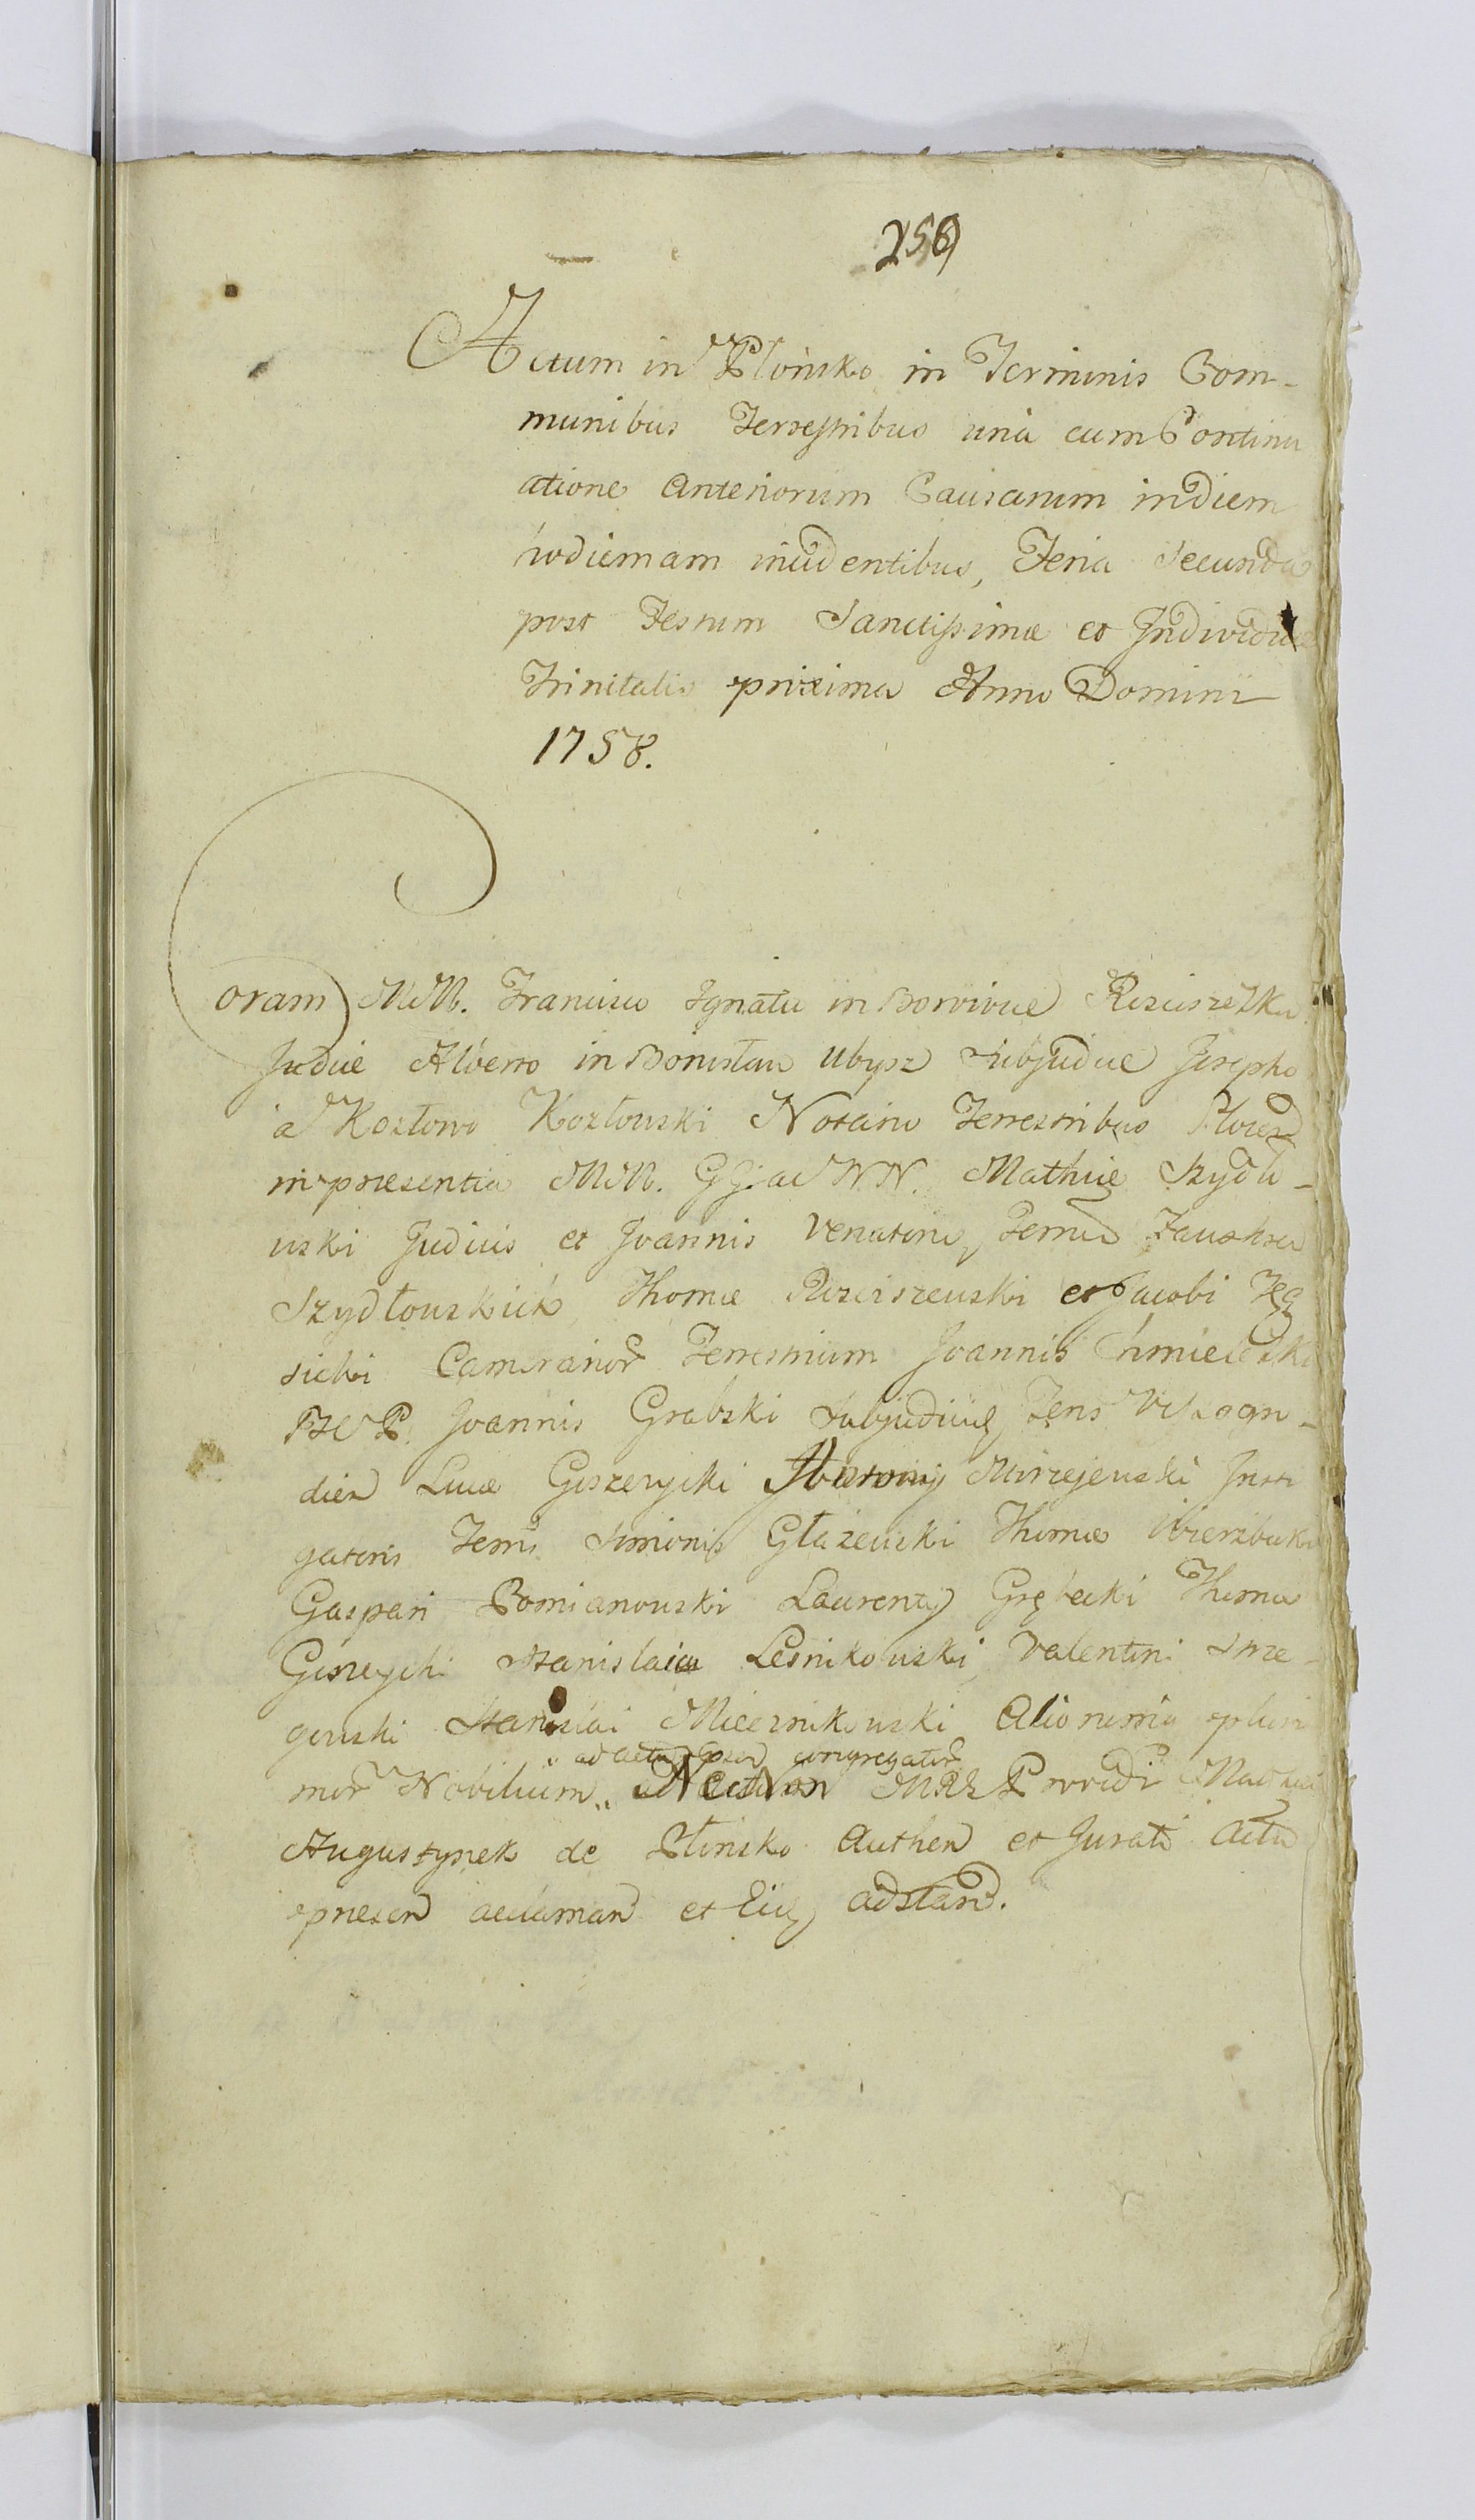 256
Actum in Płońsko in Terminis Com-
munibus Terrestribus una cum Continu
atione Anteriorum Causarum in diem
hodiernam incidentibus, Feria Secunda
post Festum Sanctissimæ et Individuæ
Trinitatis proxima Anno Domini
1758.
Coram MM. Francisco Ignatio in Borowice Rosciszewski
Judice Alberto in Bonislaw Ubysz Subjudice Josepho
à Kozłowo Kozłowski Notario Terrestribus Plocen
in præsentia MM. GG. ac NN. Mathiæ Szydło-
wski Judicis et Joannis Venatoris Terrae Zawskrzen
Szydłowskich Thomæ Rosciszewski et Jacobi
sicki Camerarior Terrestrium Joannis Chmielewski
Joannis Grabski Subjudicis Tens Wyszogro-
dien Lucæ Giszczycki Mirzejewski Insti
gatoris Terris Simonis Głażewski Thomæ Wierzbicki
Gaspari Pomianowski Laurentij Grębecki Thomæ
Giszczycki Stanislai Leśnikowski Valentini Strze
gowski Stanislai Miecznikowski Aliorumq plurі
mor Nobilium ad actu præsen congregator Nec non Providi Mathiæ
Augustynek de Płońsko Authen et Jurati Actu
præsen acclaman et Eiq adstand.